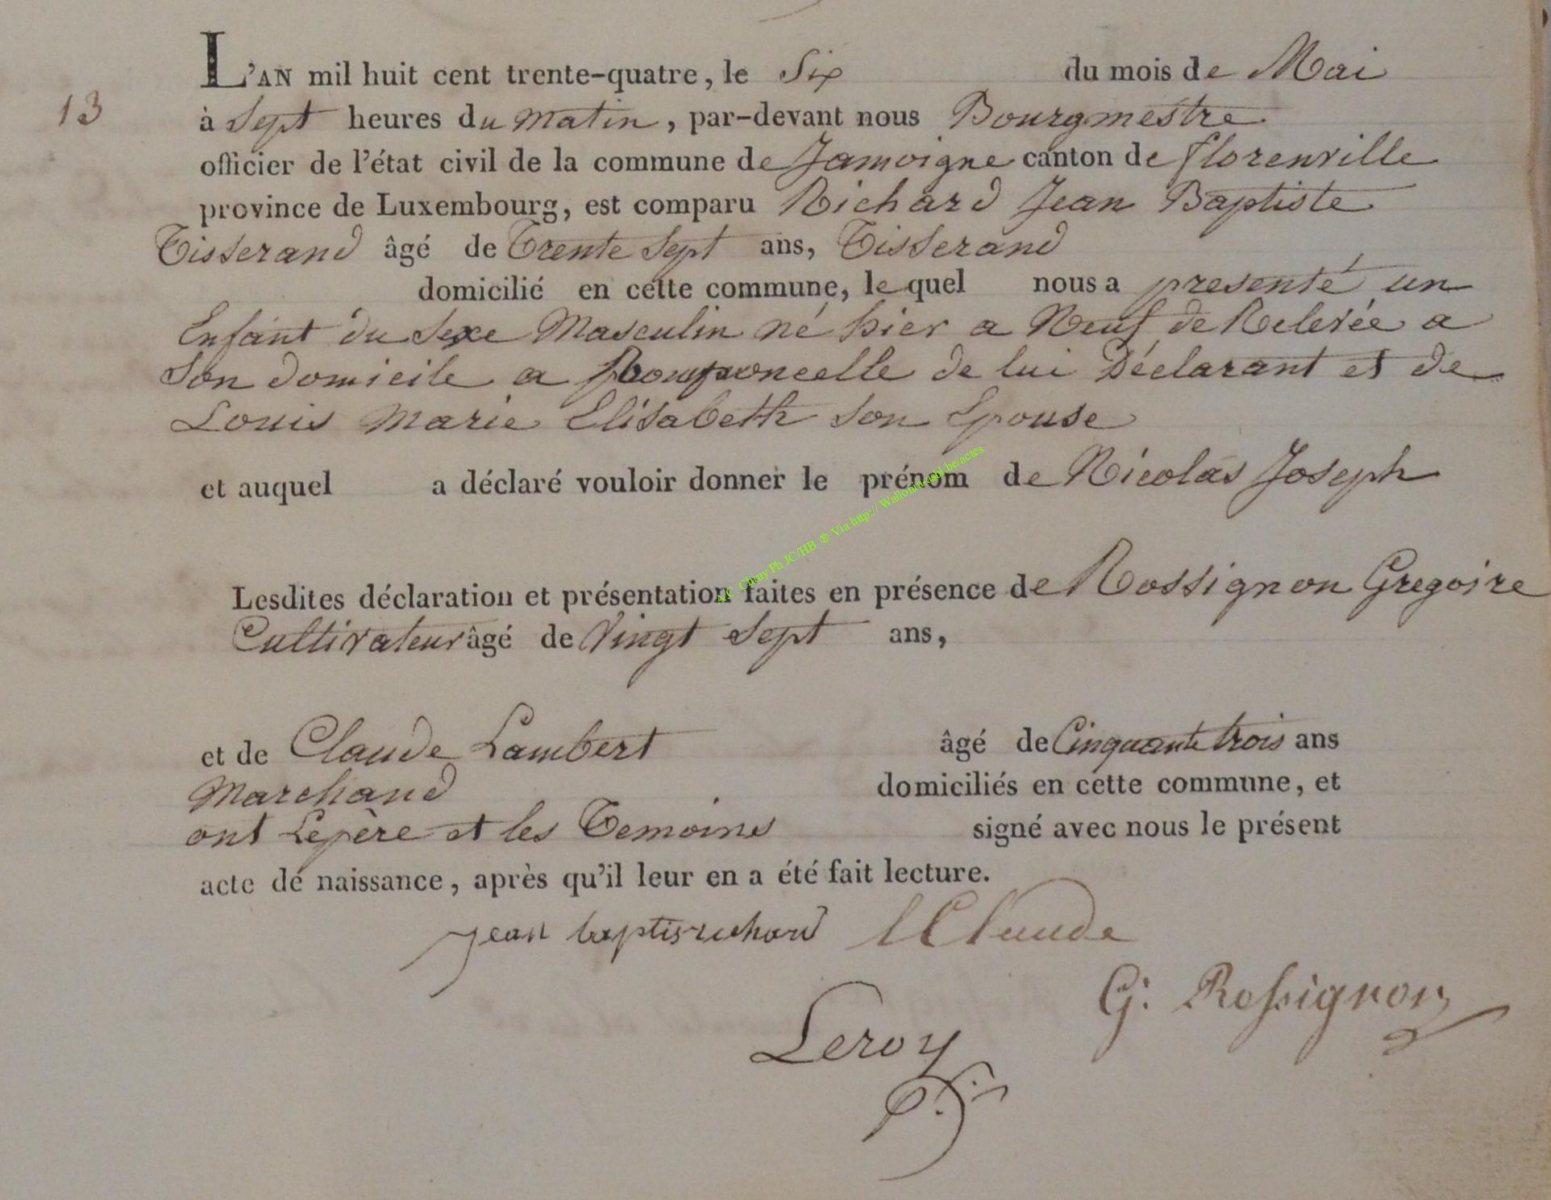 L'AN mil huit cent trente-quatre, le Six du mois de Mai
13
à Sept heures du matin, par-devant nous Bourgmestre
officier de l'état civil de la commune de Jamoigne canton de florenville
province de Luxembourg, est comparu Richard Jean Baptiste
Tisserand âgé de Trente Sept ans, Tisserand
domicilié en cette commune, le quel nous a presenté un
Enfant du Sexe Masculin né hier a Neuf de Relevée a
Son domicile a de lui Déclarant et de
Louis Marie Elisabeth Son Epouse
et auquel a déclaré vouloir donner le prénom de Nicolas Joseph
Lesdites déclaration et présentation faites en présence de Rossignon Gregoire
Cultivateur âgé de Vingt Sept ans,
et de Claude Lambert âgé de Cinquante trois ans
Marchand domiciliés en cette commune, et
ont Le père et les Temoins signé avec nous le présent
acte de naissance, après qu'il leur en a été fait lecture.
jean baptis richard l Claude
G: Rossignon
Leroy